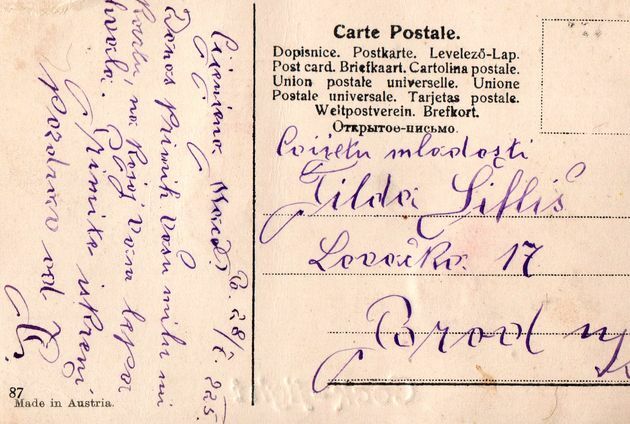 Carte Postale.
Dopisnice. Postkarte. Levelező-Lap.
Post card. Briefkaart. Cartolina postale.
Union postale universelle. Unione
Postale universale. Tarjetas postale.
Weltpostverein. Brefkort.
Открытое-письмо.
Cvijetu mladosti
Tilda
Lovačka 17
Brod
Cijenjena
Danas primih Vašu milu mi
kartu, na kojoj Vam lepa
hvala.
Primite iskreni
pozdrav od
87
Made in Austria.